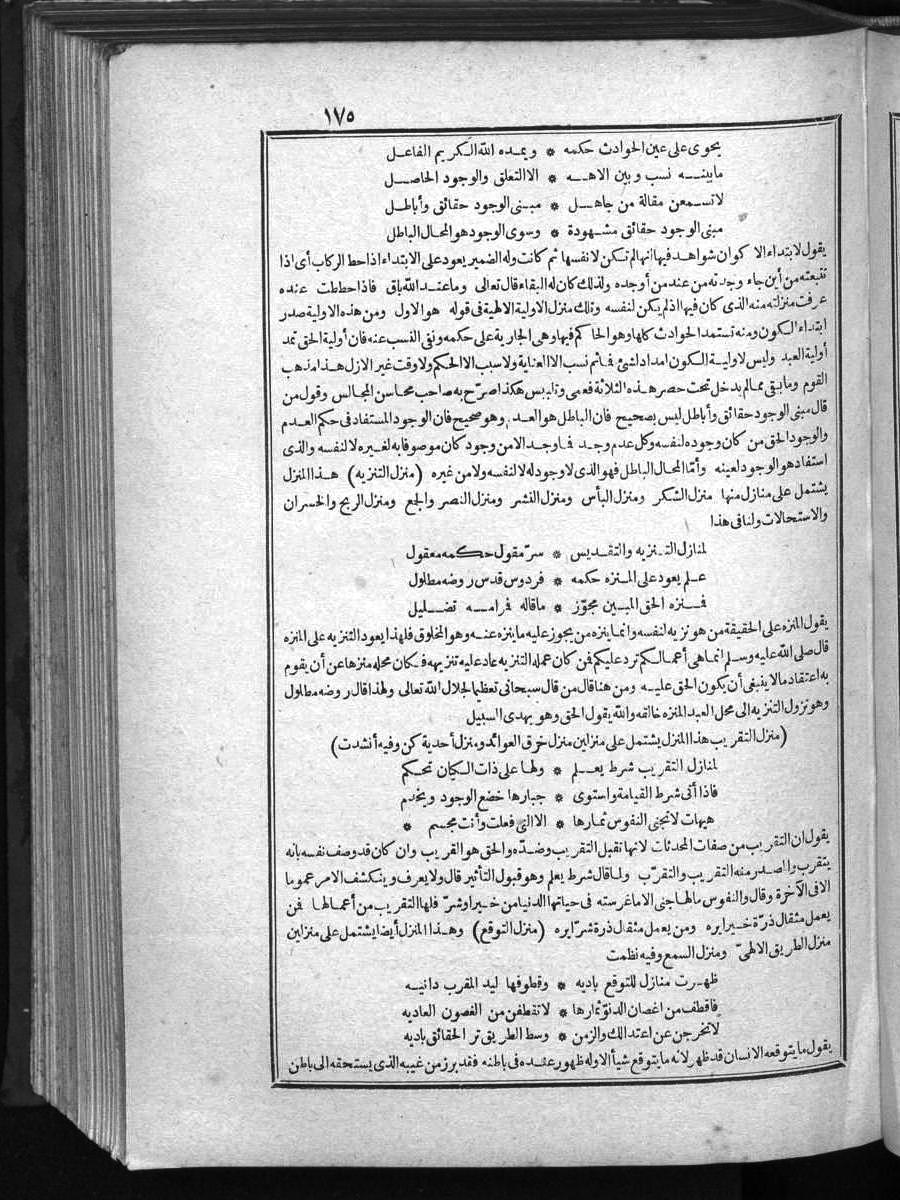 ١٧٥
يحوى على عين الحوادث حكمه * ويمده الله الكريم الفاعل
مابينه نسب وبين الاهه * الا التعلق والوجود الحاصل
لاتسمعن مقالة من جاهل * مبنى الوجود حقائق وأباطل
مبنى الوجود حقائق مشهودة * وسوى الوجود هو المحال الباطل
يقول لابتداء الاكوان شواهد فيها انها لم تكن لانفسها ثم كانت وله الضمير يعود على الابتداء اذا حط الركاب أى اذا
تتبعته من أين جاء وجدته من عند من أوجده ولذلك كان له البقاء قال تعالى وماعند الله باق فاذا حططت عنده
عرفت منزلته منه الذى كان فيها اذ لم يكن لنفسه وتلك منزل الاولية الالهية فى قوله هو الاول ومن هذه الاولية صدر
ابتداء الكون ومنه تستمد الحوادث كلها وهو الحاكم فيها وهى الجارية على حكمه ونفى النسب عنه فان أولية الحق تمد
أولية العبد وليس لاولية الكون امداد لشئ فماثم نسب الا العناية ولا سبب الا الحكم ولا وقت غير الازل هذا مذهب
القوم ومابقى ممالم يدخل تحت حصر هذه الثلاثة فعمى وتلبيس هكذا صرّح به صاحب محاسن المجالس وقول من
قال مبنى الوجود حقائق وأباطل ليس بصحيح فان الباطل هو العدم وهو صحيح فان الوجود المستفاد فى حكم العدم
والوجود الحق من كان وجوده لنفسه وكل عدم وجد فماوجد الا من وجود كان موصوفا به لغيره لا لنفسه والذى
استفاد هو الوجود لعينه وأمّا المحال الباطل فهو الذى لاوجود له لا لنفسه ولا من غيره (منزل التنزيه) هذا المنزل
يشتمل على منازل منها منزل الشكر ومنزل البأس ومنزل النشر ومنزل النصر والجمع ومنزل الربح والخسران
والاستحالات ولنا فى هذا
لمنازل التنزيه والتقديس * سرّ مقول حكمه معقول
علم يعود على المنزه حكمه * فردوس قدس روضه مطلول
فمنزه الحق المبين مجوّز * ماقاله فرامه تضليل
يقول المنزه على الحقيقة من هو نزيه لنفسه وانما ينزه من يجوز عليه ماينزه عنه وهو المخلوق فلهذا يعود التنزيه على المنزه
قال صلى الله عليه وسلم انماهى أعمالكم ترد عليكم فمن كان عمله التنزيه عاد عليه تنزيهه فكان محله منزها عن أن يقوم
به اعتقاد مالا ينبغى أن يكون الحق عليه ومن هنا قال من قال سبحانى تعظيما لجلال الله تعالى ولهذا قال روضه مطلول
وهو نزول التنزيه الى محل العبد المنزه خالقه والله يقول الحق وهو يهدى السبيل
(منزل التقريب هذا المنزل يشتمل على منزلين منزل خرق العوائد ومنزل أحدية كن وفيه أنشدت)
لمنازل التقريب شرط يعلم * ولها على ذات الكيان تحكم
فاذا أتى شرط القيامة واستوى * جبارها خضع الوجود ويخدم
هيهات لاتجنى النفوس ثمارها * الا التى فعلت وأنت مجسم *
يقول ان التقريب من صفات المحدثات لانها تقبل التقريب وضدّه والحق هو القريب وان كان قد وصف نفسه بانه
يتقرب والمصدر منه التقريب والتقرّب ولما قال شرط يعلم وهو قبول التأثير قال ولا يعرف وينكشف الامر عموما
الا فى الآخرة وقال والنفوس مالها جنى الا ماغرسته فى حياتها الدنيا من خير أو شرّ فلها التقريب من أعمالها فمن
يعمل مثقال ذرّة خيرا يره ومن يعمل مثقال ذرة شرّا يره (منزل التوقع) وهذا المنزل أيضا يشتمل على منزلين
منزل الطريق الالهىّ ومنزل السمع وفيه نظمت
ظهرت منازل للتوقع باديه * وقطوفها ليد المقرب دانيه
فاقطف من اغصان الدنوّ ثمارها * لاتقطفن من الغصون العاديه
لاتخرجن عن اعتدالك والزمن * وسط الطريق تر الحقائق باديه
يقول مايتوقعه الانسان قد ظهر لانه مايتوقع شيأ الا وله ظهور عنده فى باطنه فقد برز من غيبه الذى يستحقه الى باطن